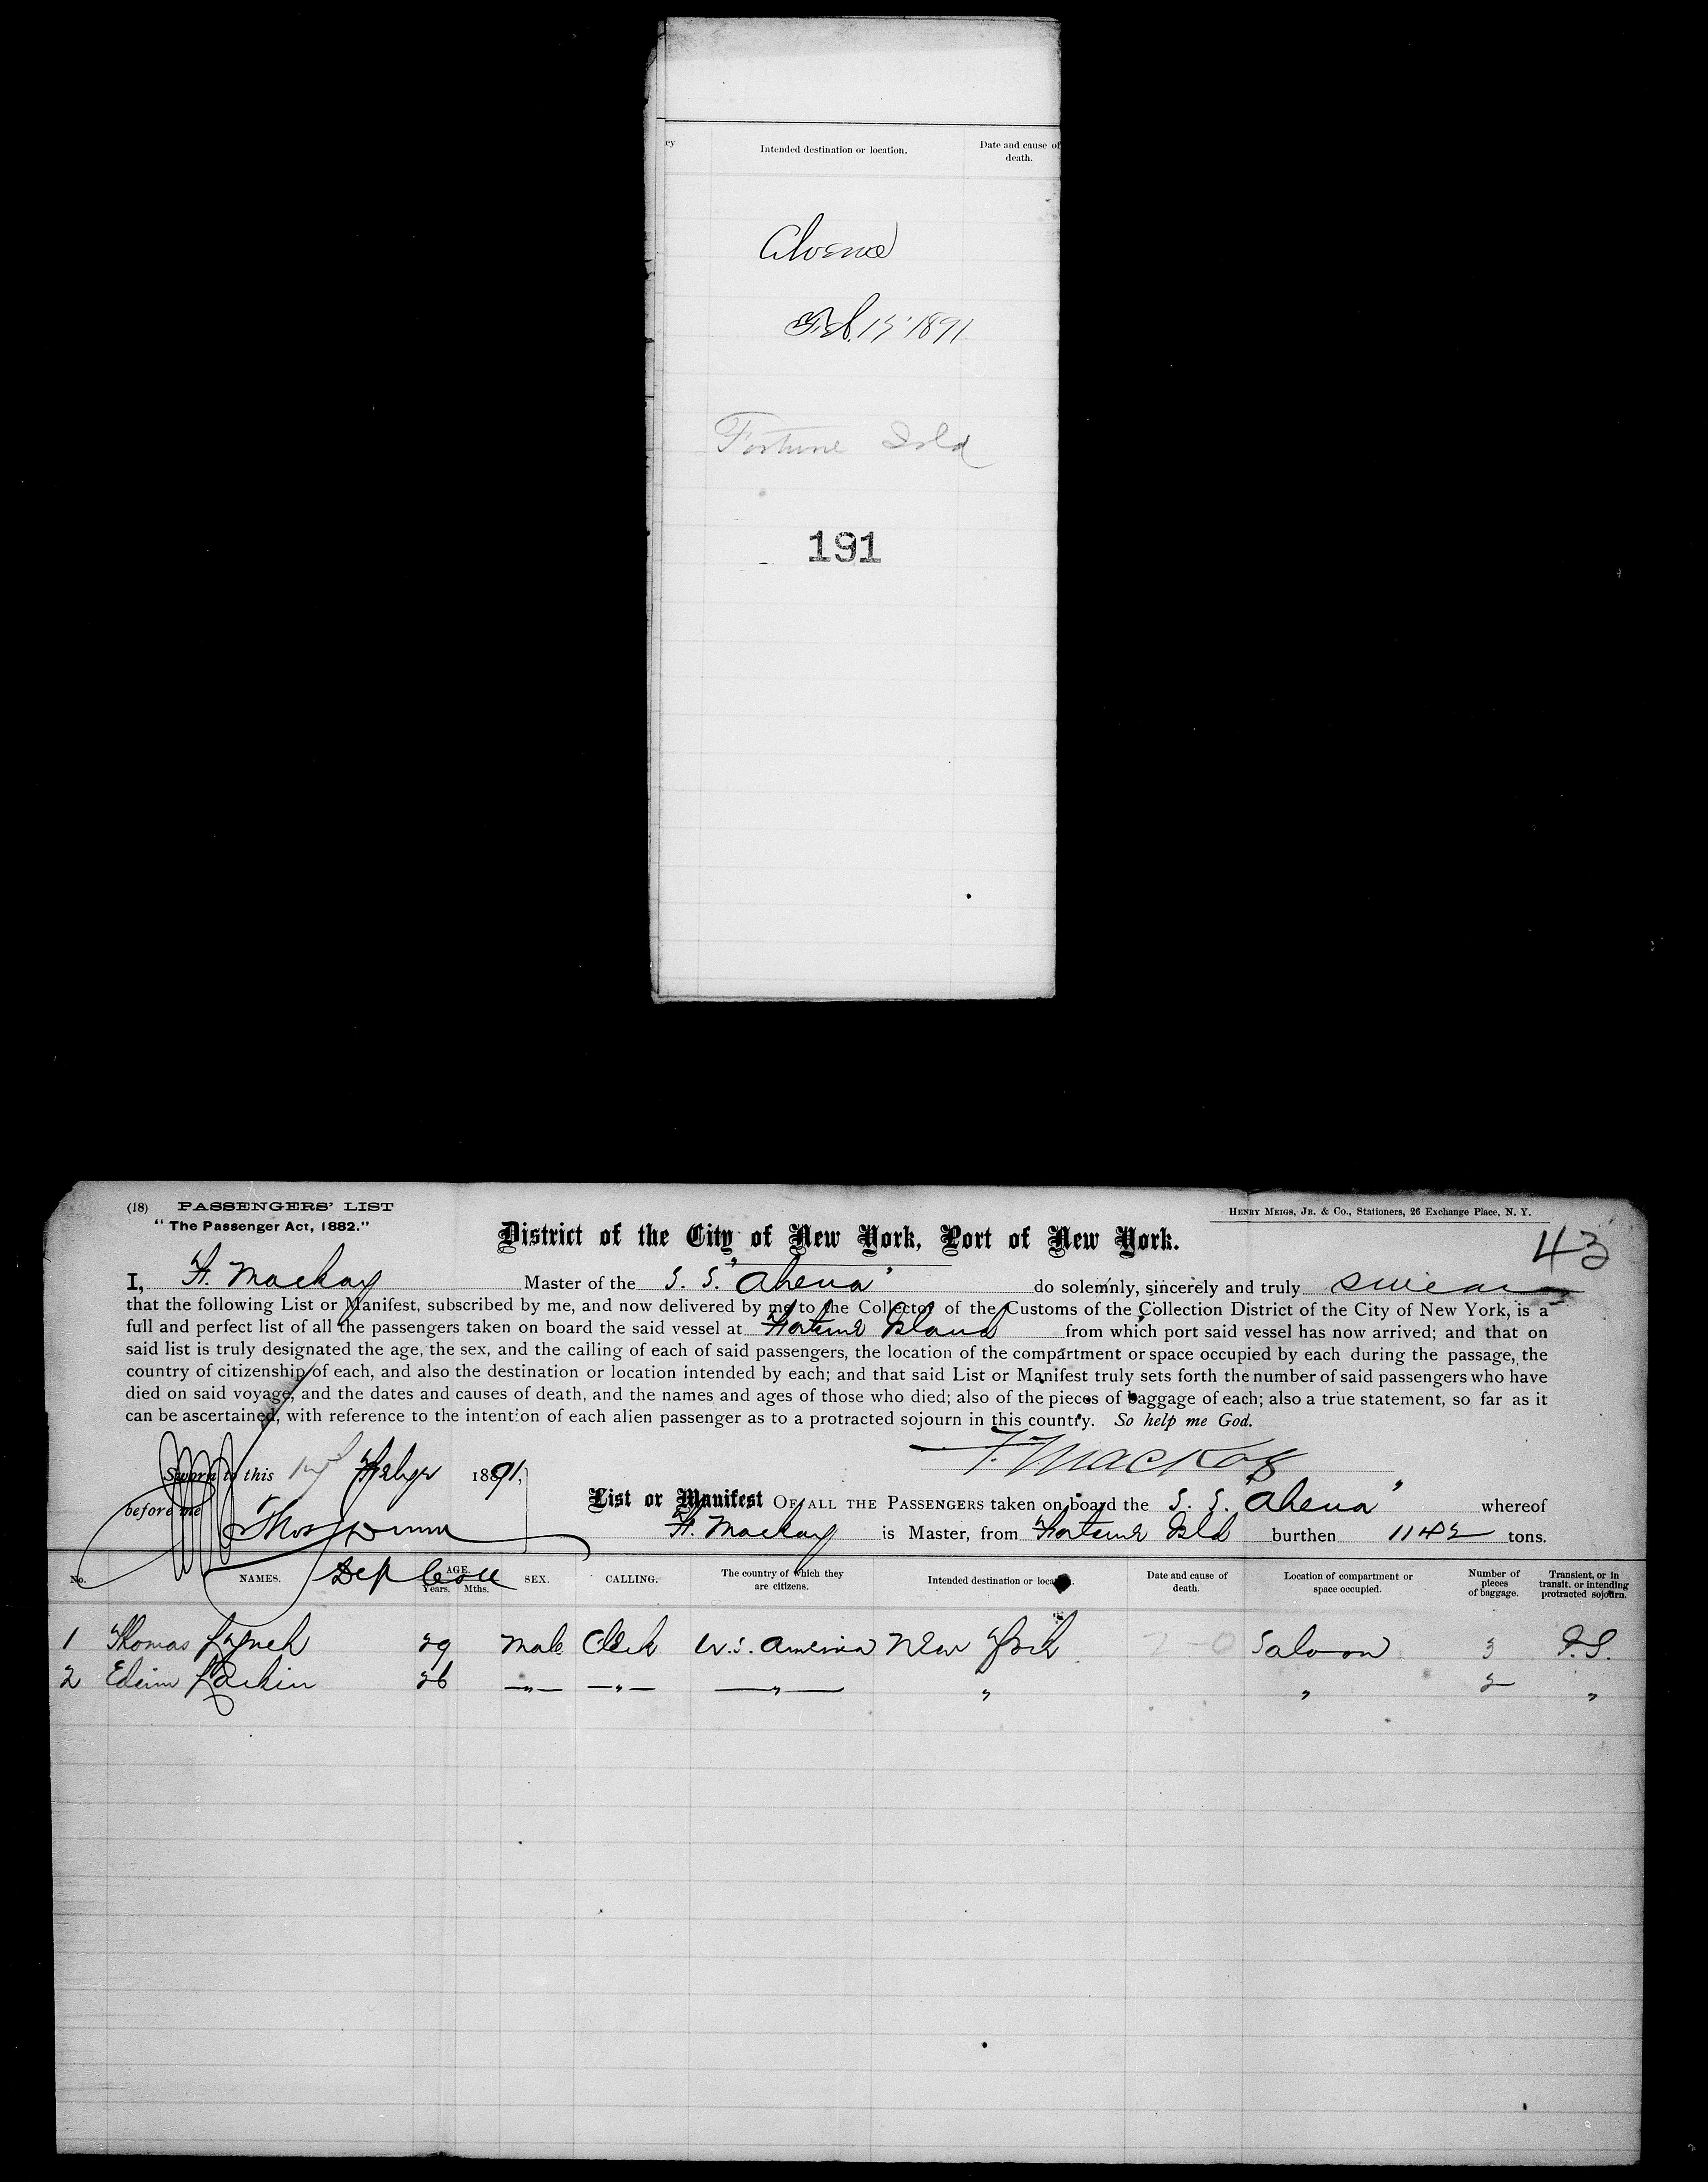 ey
Intended destination or location.
Date and cause of
death.
Alvena
Feb. 17 1891
Fortune Isld
191
(18) PASSENGERS' LIST
"The Passenger Act, 1882."
HENRY MEIGS, JR. & CO., Stationers, 26 Exchange Place, N. Y.
District of the City of New York, Port of New York.
43
I, F. Mackay Master of the S. S. "Alvena" do solemnly, sincerely and truly swear
that the following List or Manifest, subscribed by me, and now delivered by me to the Collector of the Customs of the Collection District of the City of New York, is a
full and perfect list of all the passengers taken on board the said vessel at Fortune Island from which port said vessel has now arrived; and that on
said list is truly designated the age, the sex, and the calling of each of said passengers, the location of the compartment or space occupied by each during the passage, the
country of citizenship of each, and also the destination or location intended by each; and that said List or Manifest truly sets forth the number of said passengers who have
died on said voyage, and the dates and causes of death, and the names and ages of those who died; also of the pieces of baggage of each; also a true statement, so far as it
can be ascertained, with reference to the intention of each alien passenger as to a protracted sojourn in this country. So help me God.
F. Mackay
Sworn to this 17 1891,
before me
Thos
Dep Coll
List or Manifest OF ALL THE PASSENGERS taken on board the S. S. "Alvena" whereof
F. Mackay is Master, from Fortune Isld burthen 1142 tons.
No. NAMES. AGE. Years. Mths. SEX. CALLING. The country of which they are citizens. Intended destination or location. Date and cause of death. Location of compartment or space occupied. Number of pieces of baggage. Transient, or in transit, or intending protracted sojourn.
1 Thomas Lynch 29 Male Clerk U.S. America New York Saloon 3 P.S.
2 Edwin Larkin 26 —"— —"— —"— " " 2 "